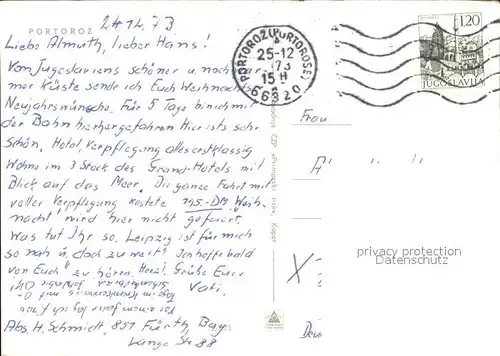 24.12.73
PORTOROZ
Liebe Almuth, lieber Hans!
Von Jugoslaviens schöner u. noch
mer Küste sende ich Euch Weihnachts
Neujahrswünsche. Für 5 Tage bin ich mit
der Bahn hierhergefahren. Hier ist es sehr
Schön. Hotel, Verpflegung alles erstklassig
Wohne im 3 Stock des Grand-Hotels mit
Blick auf das Meer. Die ganze Fahrt mit
voller Verpflegung kostete 195.-DM. "Weih-
nacht" wird hier nicht gefeiert.
Was tut Ihr so. Leipzig ist für mich
so nah u. doch zu weit" Ich hoffe bald
von Euch zu hören. Herzl. Grüße Euer
Abs. H. Schmidt, 851 Fürth, Bay
Lange Str 88
PORTOROŽ (PORTOROSE)
25-12
73
15 H
66320
1,20
JUGOSLAVIJA
Frau
privacy protection
Datenschutz
X